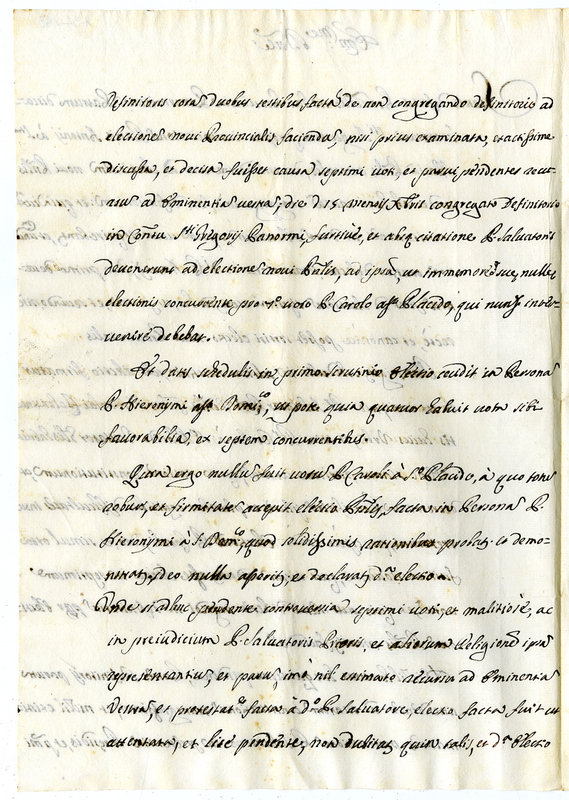 Definitoris cora duobus testibus facta de non congregando definitorio ad
electione noui Provincialis facienda, nisi prius examinata, et actissime
discussa, et decisa fuisset causa septimi uoti, et parui pendentes recur-
sus ad Eminentia vestra, die d 15 mensis Xbris congregato Definitorio
in Conu Sti Grigorij Panormi, furtiuè, et absq citatione P. Saluatoris
deuenerunt ad electione noui Pnlis, ad ipsa, ut immemores sue, nulle
electionis concurrente pro 7º uoto P. Carolo a S. Placido, qui nunq inter-
uenire debebat.
Et datis schedulis in primo scrutinio Electio cecidit in Persona
P. Hieronymi a S. Domco, ut pote quia quatuor habuit uota sibi
fauorabilia, ex septem concurrentibus.
Quia ergo nullu fuit uotu P. Caroli à S. Placido, à quo totu
robur, et firmitate accepit electio Pnlis, facta in Persona P.
Hieronymi à S. Domco, quod solidissimis rationibus probat. et demo-
nstrat, ideo nulla asserit, et declarat da electio.
Unde si adhuc pendente controuersia septimi uoti, et malitiosè, ac
in preiudicium P. Saluatoris Prioris, et aliorum Religione ipsa
representantiu, et parui, imò nil estimato recursu ad Eminentia
Vestra, et protestat facta à do P. Saluatore, electio facta fuit et
attentata, et lite pendente, non dubitat quin talis, et da Electio